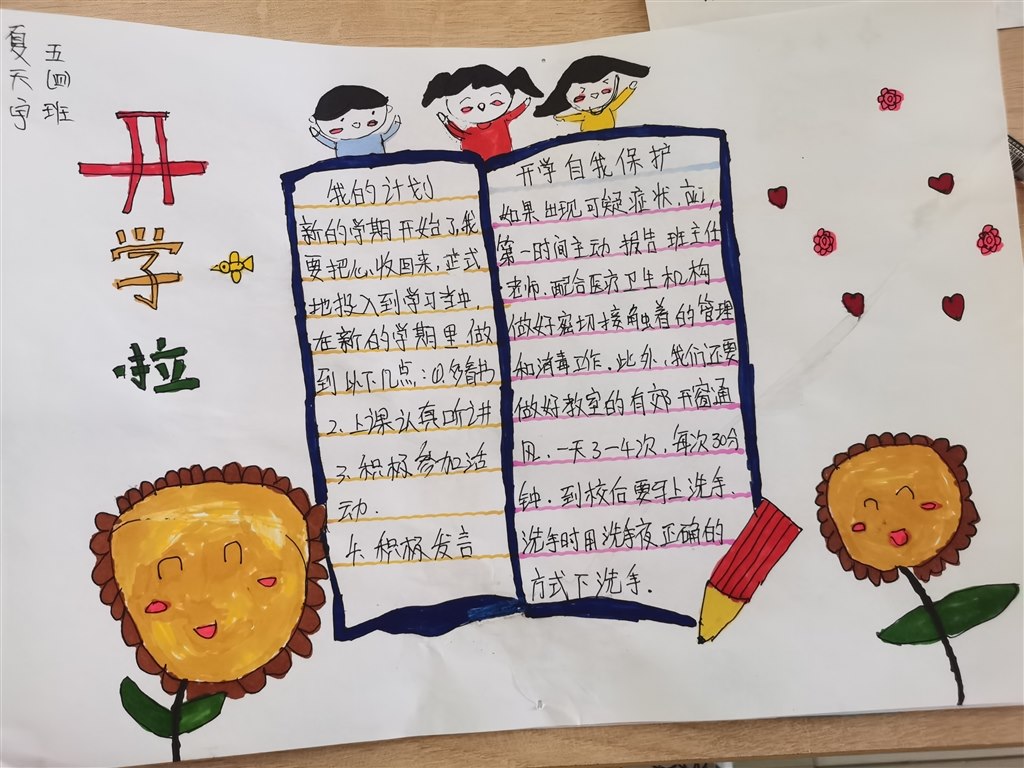 五(四)班
夏天宇
开学啦
我的计划
新的学期开始了,我
要把心收回来,正式
地投入到学习当中,
在新的学期里,做
到以下几点:①.多看书
2.上课认真听讲
3.积极参加活
动.
4.积极发言
开学自我保护
如果出现可疑症状,应
第一时间主动报告班主任
老师.配合医疗卫生机构
做好密切接触着的管理
和消毒工作.此外,我们还要
做好教室的有效开窗通
风.一天3一4次,每次30分
钟.到校后要马上洗手.
洗手时用洗手夜正确的
方式下洗手.